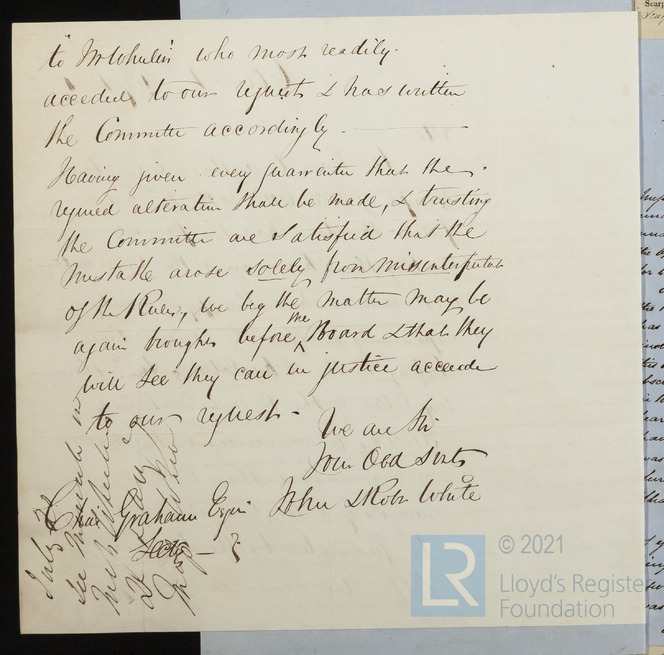 to Mr Wheler who most readily
acceded to our request & has written
the Committee accordingly.
Having given every guarantee that the
required alteration shall be made, & trusting
the Committee are satisfied that the
mistake arose solely from misinterpretation
of the Rules, we beg the matter may be
again brought before the Board & that they
will see they can in justice accede
to our request -
We are Sir
Your Obd Servts
John & Robt White
Chas Graham Esqre
Secty
July
© 2021
LR
Lloyd's Register
Foundation